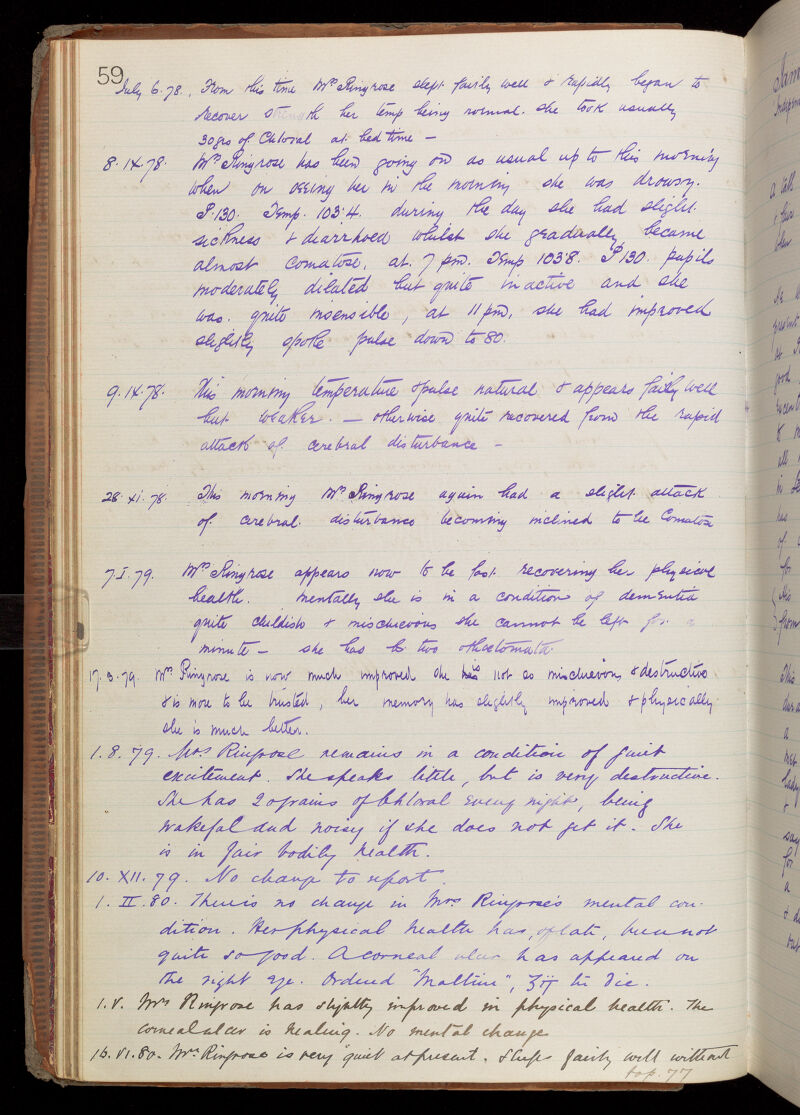 59
July 6.78. From this time Mrs Ringrose slept fairly well & rapidly began to
recover strength her temp being normal. she took usually
30grs of Chloral at bed time —
8.IX.78. Mrs Ringrose has been going on as usual up to this morning
when on seeing her in the morning she was drowsy.
P.130. Temp. 103.4. during the day she had slight
sickness & diarrhoea whilst she gradually became
almost comatose, at 7 pm. Temp 103.8. P 130. pupils
moderately dilated but quite inactive and she
was quite insensible, at 11 pm, she had improved
slightly spoke pulse down to 80.
9.IX.78. This morning temperature & pulse natural & appears fairly well
but weaker. — otherwise quite recovered from the rapid
attack of cerebral disturbance —
28.XI.78. This morning Mrs Ringrose again had a slight attack
of cerebral disturbance becoming inclined to be Comatose
7.I.79. Mrs Ringrose appears now to be fast recovering her physical
health. mentally she is in a condition of dementia
quite childish & mischievous she cannot be left for a
minute — she has two othaetomata.
17.3.79. Mrs Ringrose is now much improved she is not so mischievous & destructive
& is more to be trusted, her memory has slightly improved & physically
she is much better.
1.8.79. Mrs Ringrose remains in a condition of quiet
excitement. She speaks little, but is very destructive.
She has 20 grains of Chloral every night, being
wakeful and noisy if she does not get it. She
is in fair bodily health.
10.XII.79. No change to report.
1.II.80. There is no change in Mrs Ringrose's mental con-
dition. Her physical health has, of late, been not
quite so good. A corneal ulcer has appeared on
the right eye. Ordered "Maltine", ʒii ter die.
1.V. Mrs Ringrose has slightly improved in physical health. The
corneal ulcer is healing. No mental change
16.VI.80. Mrs Ringrose is very quiet at present. Sleeps fairly well without
to p. 77